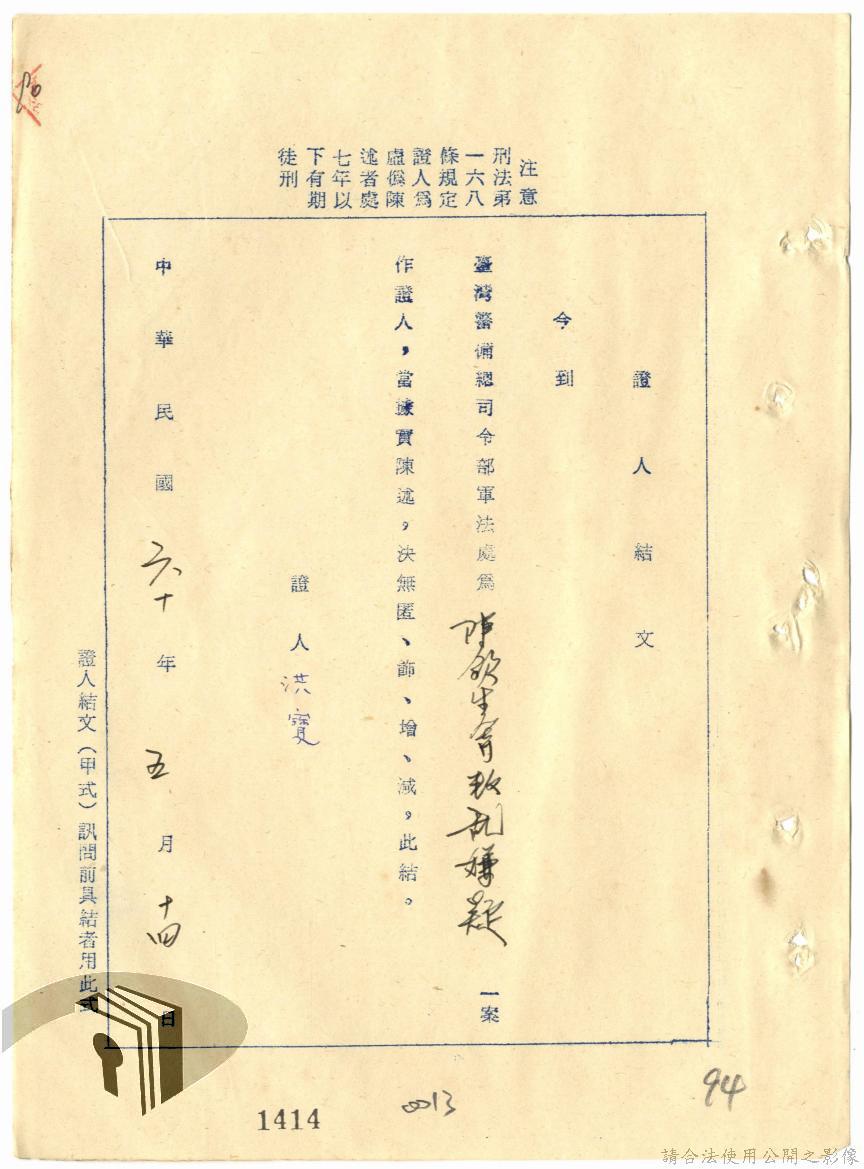 注意
刑法第
一六八
條規定
證人爲
虛僞陳
述者處
七年以
下有期
徒刑
證人結文
今到
臺灣警備總司令部軍法處爲陳欽生叛乱嫌疑一案
作證人，當據實陳述，決無匿、飾、增、減，此結。
證人洪寶
中華民國六十年五月十四日
證人結文（甲式）訊問前具結者用此式
94
0013
1414
請合法使用公開之影像